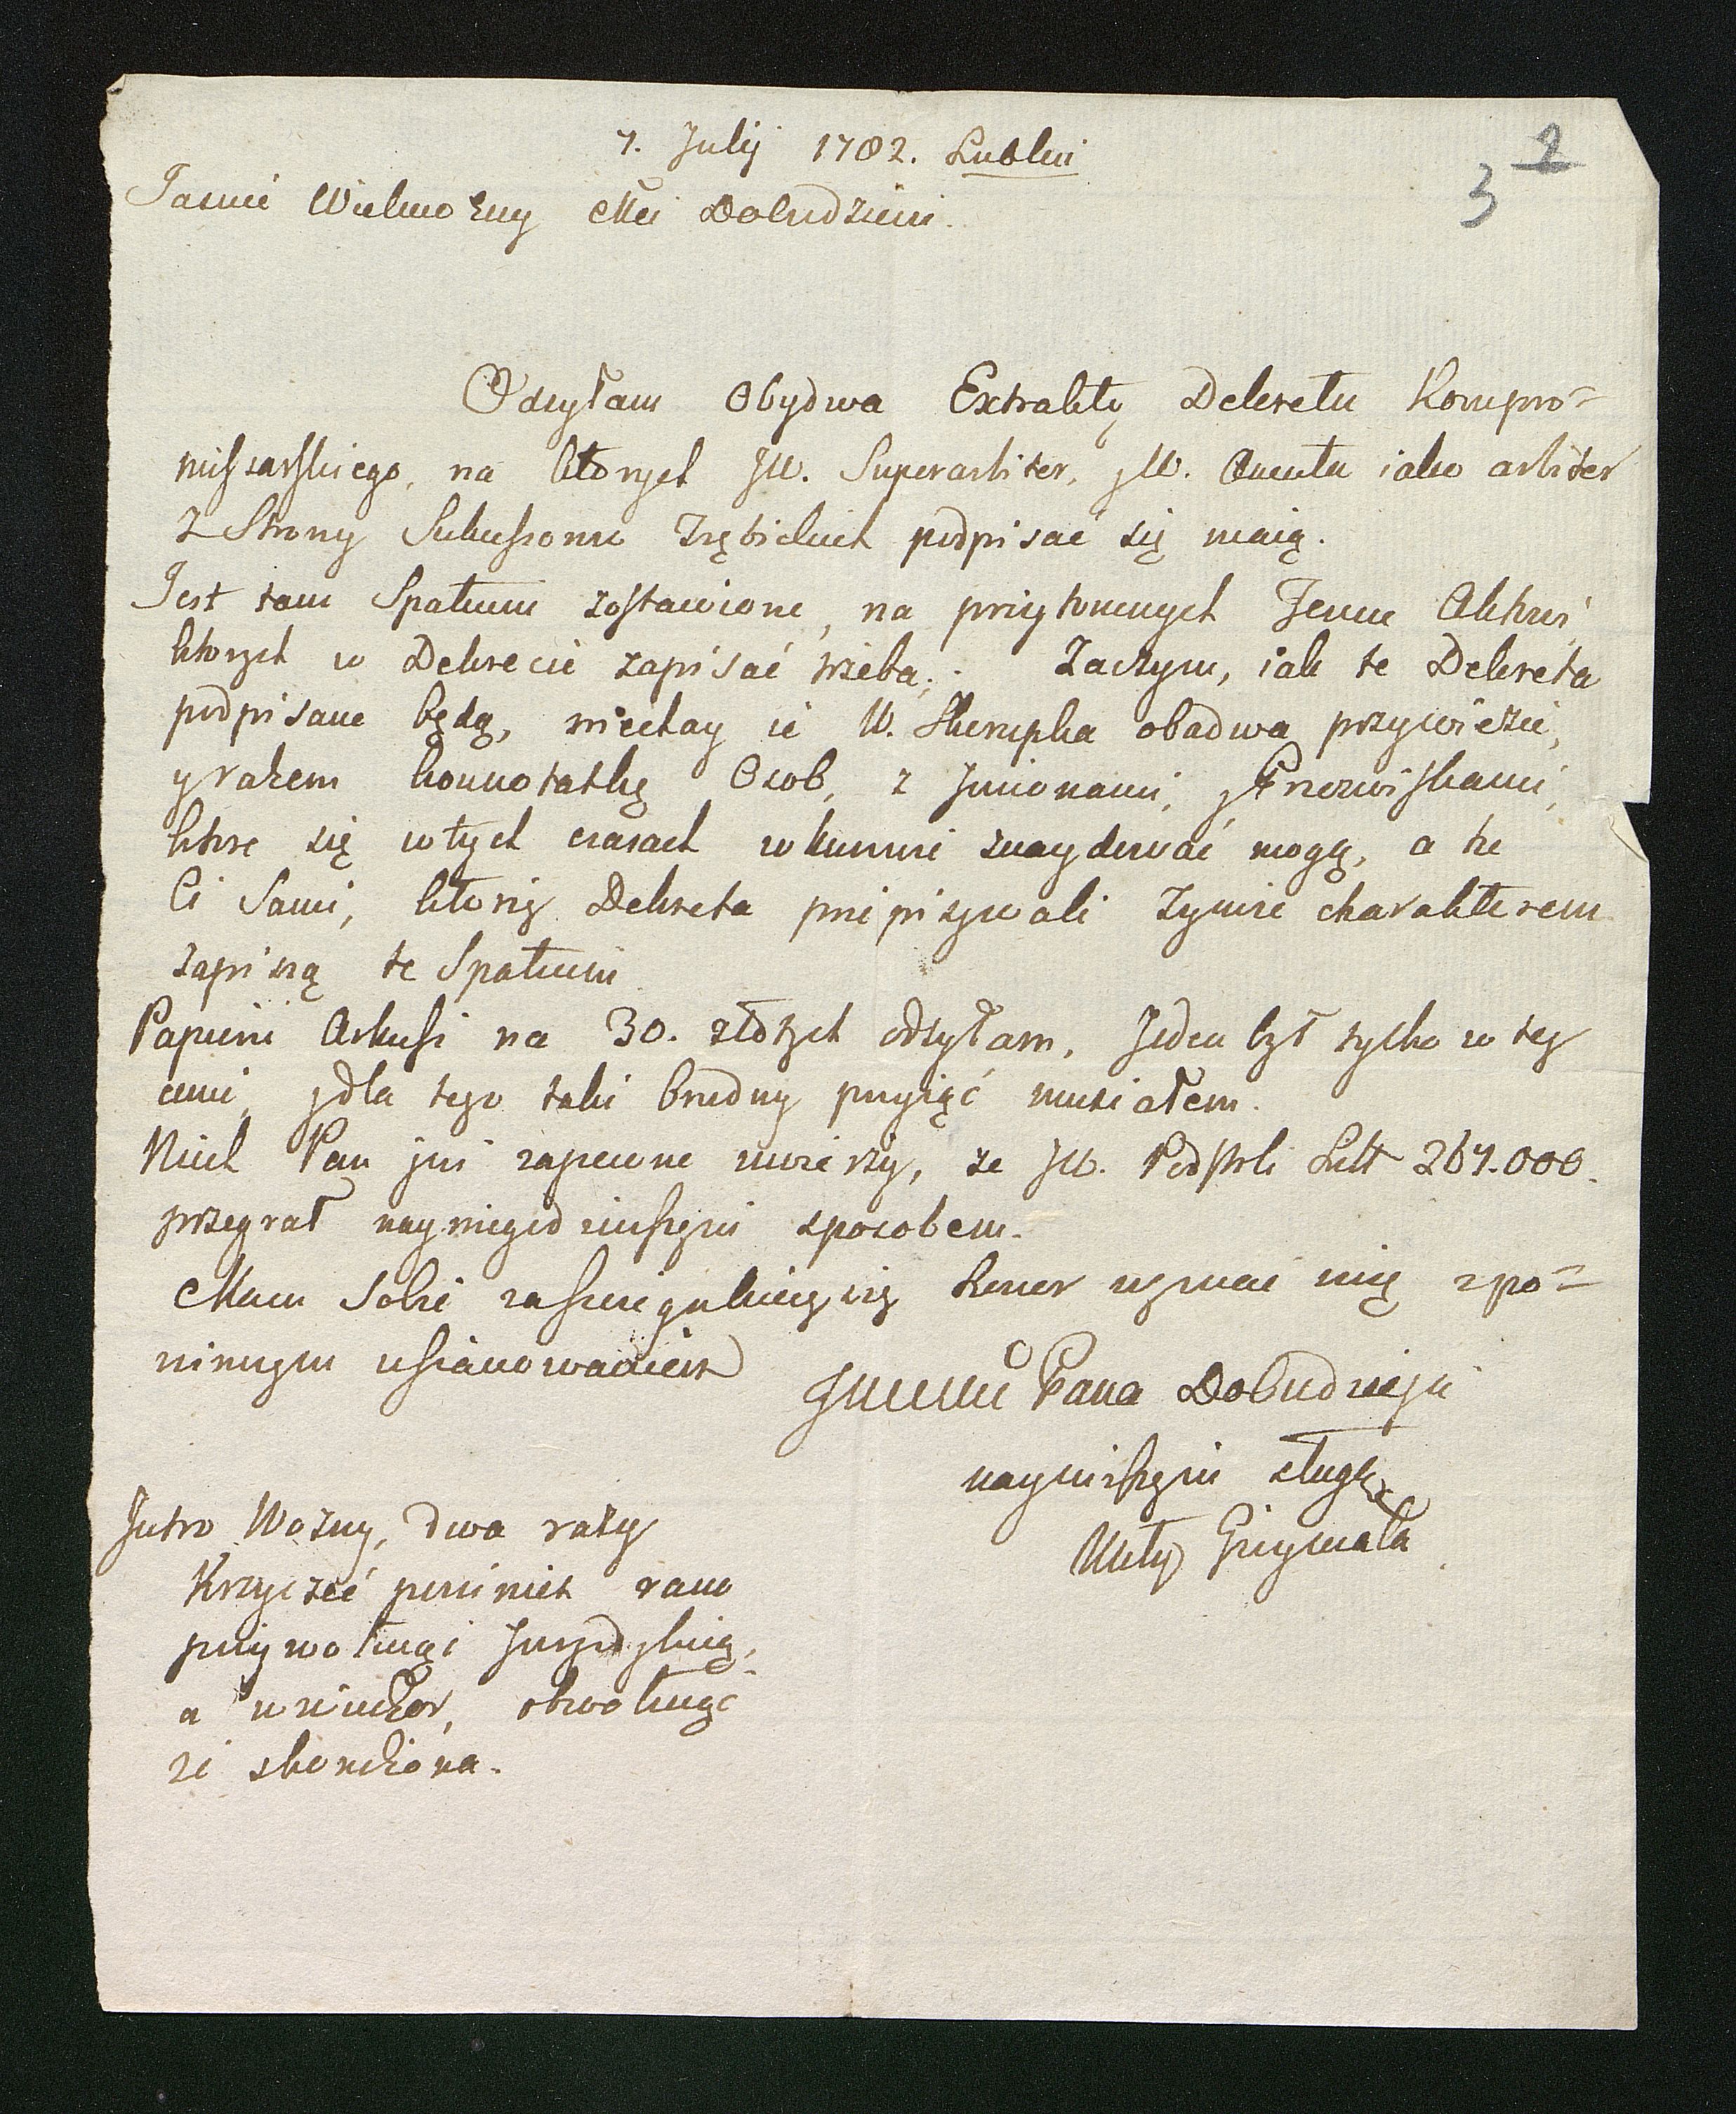 7. Julij 1782. Lublin
2
3
Jasnie Wielmożny Mci Dobrodzieiu.
Odsyłam Obydwa Extrakty Dekretu Kompro=
missarskiego, na ktorych JW. Superarbiter, yW. iako arbiter
z Strony Sukcessorow podpisać się maią.
Jest tam Spatium zostawione, na przytomnych Jemu Aktowi,
ktorych w Dekrecie zapisać trzeba. Zaczym, iak te Dekreta
podpisane będą, niechay ie W. obadwa przywiezie,
y razem konnotatkę Osob, z Jmionami, y Przezwiskami,
ktore się w tych czasach znaydować mogą, a te
Ci Sami, ktorzy Dekreta przepisywali Tymże charakterem
zapiszą te Spatium
Papieru Arkusz na 30. złotych odsyłam, Jeden był tylko w tey
cenie, y dla tego taki brudny przyiąć musiałem.
Niech Pan już zapewne wierzy, że JW. Podstoli Litt 267.000.
przegrał nayniegodzieuszym sposobem.
Mam Sobie za honor uznać się z po=
winnym uszanowaniem
JWWMć Pana Dobrodzieja
nayniższym sługą
Grzymała
Jutro Woźny, dwa razy
Krzyczeć powinien rano
przywołuiąc Juryzdykcyą,
a w wieczor, obwołuiąc
że skończona.